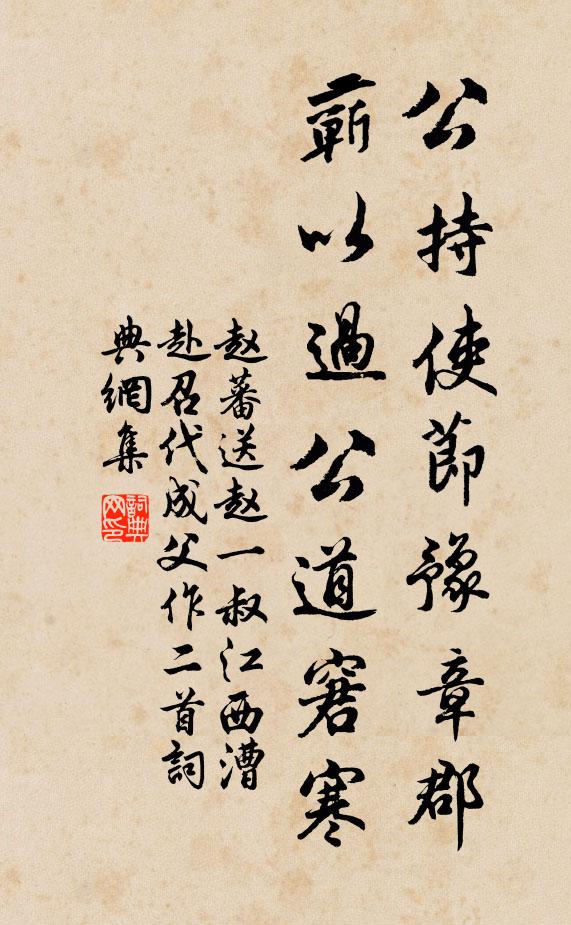 公持使節豫章郡
蘄以過公道窘寒
赵蕃送赵一叔江西漕
赴召代成父作二首詞
典網集
詞典
网印